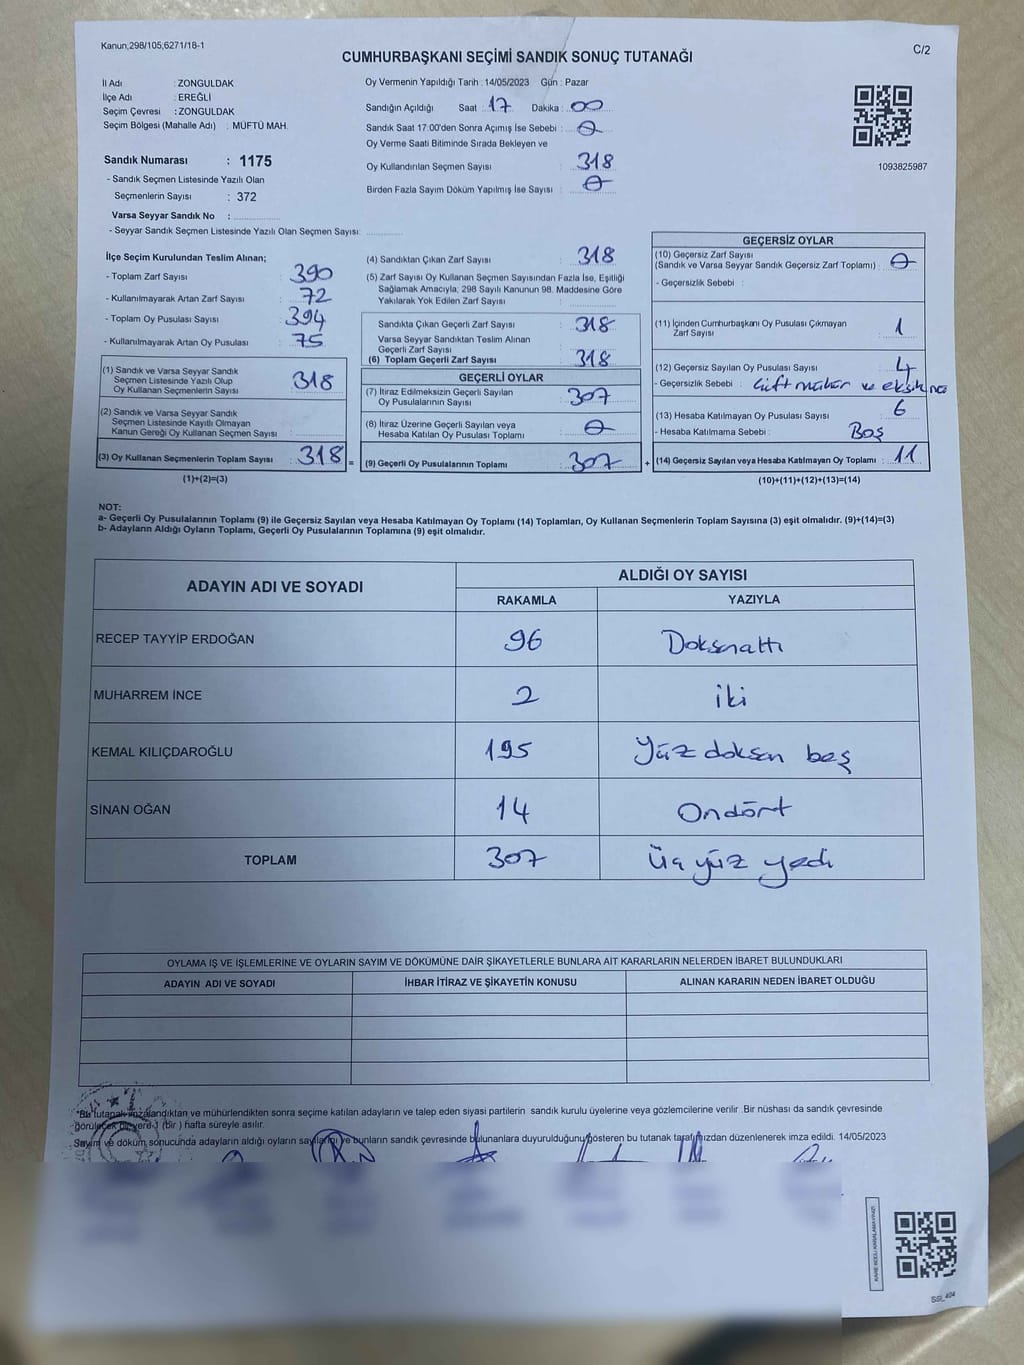 Kanun,298/105,6271/18-1
C/2
CUMHURBAŞKANI SEÇİMİ SANDIK SONUÇ TUTANAĞI
İl Adı : ZONGULDAK
İlçe Adı : EREĞLİ
Seçim Çevresi : ZONGULDAK
Seçim Bölgesi (Mahalle Adı) : MÜFTÜ MAH.
Sandık Numarası : 1175
- Sandık Seçmen Listesinde Yazılı Olan
Seçmenlerin Sayısı : 372
Varsa Seyyar Sandık No :
- Seyyar Sandık Seçmen Listesinde Yazılı Olan Seçmen Sayısı:
Oy Vermenin Yapıldığı Tarih : 14/05/2023 Gün : Pazar
Sandığın Açıldığı Saat : 17 Dakika : 00
Sandık Saat 17:00'den Sonra Açımış İse Sebebi : 0
Oy Verme Saati Bitiminde Sırada Bekleyen ve
Oy Kullandırılan Seçmen Sayısı : 318
Birden Fazla Sayım Döküm Yapılmış İse Sayısı : 0
1093825987
İlçe Seçim Kurulundan Teslim Alınan;
- Toplam Zarf Sayısı : 390
- Kullanılmayarak Artan Zarf Sayısı : 72
- Toplam Oy Pusulası Sayısı : 394
- Kullanılmayarak Artan Oy Pusulası : 75
(1) Sandık ve Varsa Seyyar Sandık
Seçmen Listesinde Yazılı Olup
Oy Kullanan Seçmenlerin Sayısı : 318
(2) Sandık ve Varsa Seyyar Sandık
Seçmen Listesinde Kayıtlı Olmayan
Kanun Gereği Oy Kullanan Seçmen Sayısı :
(3) Oy Kullanan Seçmenlerin Toplam Sayısı : 318 =
(1)+(2)=(3)
(4) Sandıktan Çıkan Zarf Sayısı : 318
(5) Zarf Sayısı Oy Kullanan Seçmen Sayısından Fazla İse, Eşitliği
Sağlamak Amacıyla; 298 Sayılı Kanunun 98. Maddesine Göre
Yakılarak Yok Edilen Zarf Sayısı :
Sandıkta Çıkan Geçerli Zarf Sayısı : 318
Varsa Seyyar Sandıktan Teslim Alınan
Geçerli Zarf Sayısı :
(6) Toplam Geçerli Zarf Sayısı : 318
GEÇERLİ OYLAR
(7) İtiraz Edilmeksizin Geçerli Sayılan
Oy Pusulalarının Sayısı : 307
(8) İtiraz Üzerine Geçerli Sayılan veya
Hesaba Katılan Oy Pusulası Toplamı : 0
(9) Geçerli Oy Pusulalarının Toplamı : 307 +
GEÇERSİZ OYLAR
(10) Geçersiz Zarf Sayısı
(Sandık ve Varsa Seyyar Sandık Geçersiz Zarf Toplamı) : 0
- Geçersizlik Sebebi :
(11) İçinden Cumhurbaşkanı Oy Pusulası Çıkmayan
Zarf Sayısı : 1
(12) Geçersiz Sayılan Oy Pusulası Sayısı : 4
- Geçersizlik Sebebi : Çift mühür ve eksik
(13) Hesaba Katılmayan Oy Pusulası Sayısı : 6
- Hesaba Katılmama Sebebi : Boş
(14) Geçersiz Sayılan veya Hesaba Katılmayan Oy Toplamı : 11
(10)+(11)+(12)+(13)=(14)
NOT:
a- Geçerli Oy Pusulalarının Toplamı (9) ile Geçersiz Sayılan veya Hesaba Katılmayan Oy Toplamı (14) Toplamları, Oy Kullanan Seçmenlerin Toplam Sayısına (3) eşit olmalıdır. (9)+(14)=(3)
b- Adayların Aldığı Oyların Toplamı, Geçerli Oy Pusulalarının Toplamına (9) eşit olmalıdır.
ADAYIN ADI VE SOYADI
ALDIĞI OY SAYISI
RAKAMLA YAZIYLA
RECEP TAYYİP ERDOĞAN 96 Doksanaltı
MUHARREM İNCE 2 iki
KEMAL KILIÇDAROĞLU 195 Yüz doksan beş
SİNAN OĞAN 14 Ondört
TOPLAM 307 Üç yüz yedi
OYLAMA İŞ VE İŞLEMLERİNE VE OYLARIN SAYIM VE DÖKÜMÜNE DAİR ŞİKAYETLERLE BUNLARA AİT KARARLARIN NELERDEN İBARET BULUNDUKLARI
ADAYIN ADI VE SOYADI İHBAR İTİRAZ VE ŞİKAYETİN KONUSU ALINAN KARARIN NEDEN İBARET OLDUĞU
*Bu tutanak imzalandıktan ve mühürlendikten sonra seçime katılan adayların ve talep eden siyasi partilerin sandık kurulu üyelerine veya gözlemcilerine verilir .Bir nüshası da sandık çevresinde
görülecek bir yere 1 (bir ) hafta süreyle asılır.
Sayım ve döküm sonucunda adayların aldığı oyların sayılarını ve bunların sandık çevresinde bulunanlara duyurulduğunu gösteren bu tutanak tarafımızdan düzenlenerek imza edildi. 14/05/2023
KARE KODU KARALAMAYINIZ!